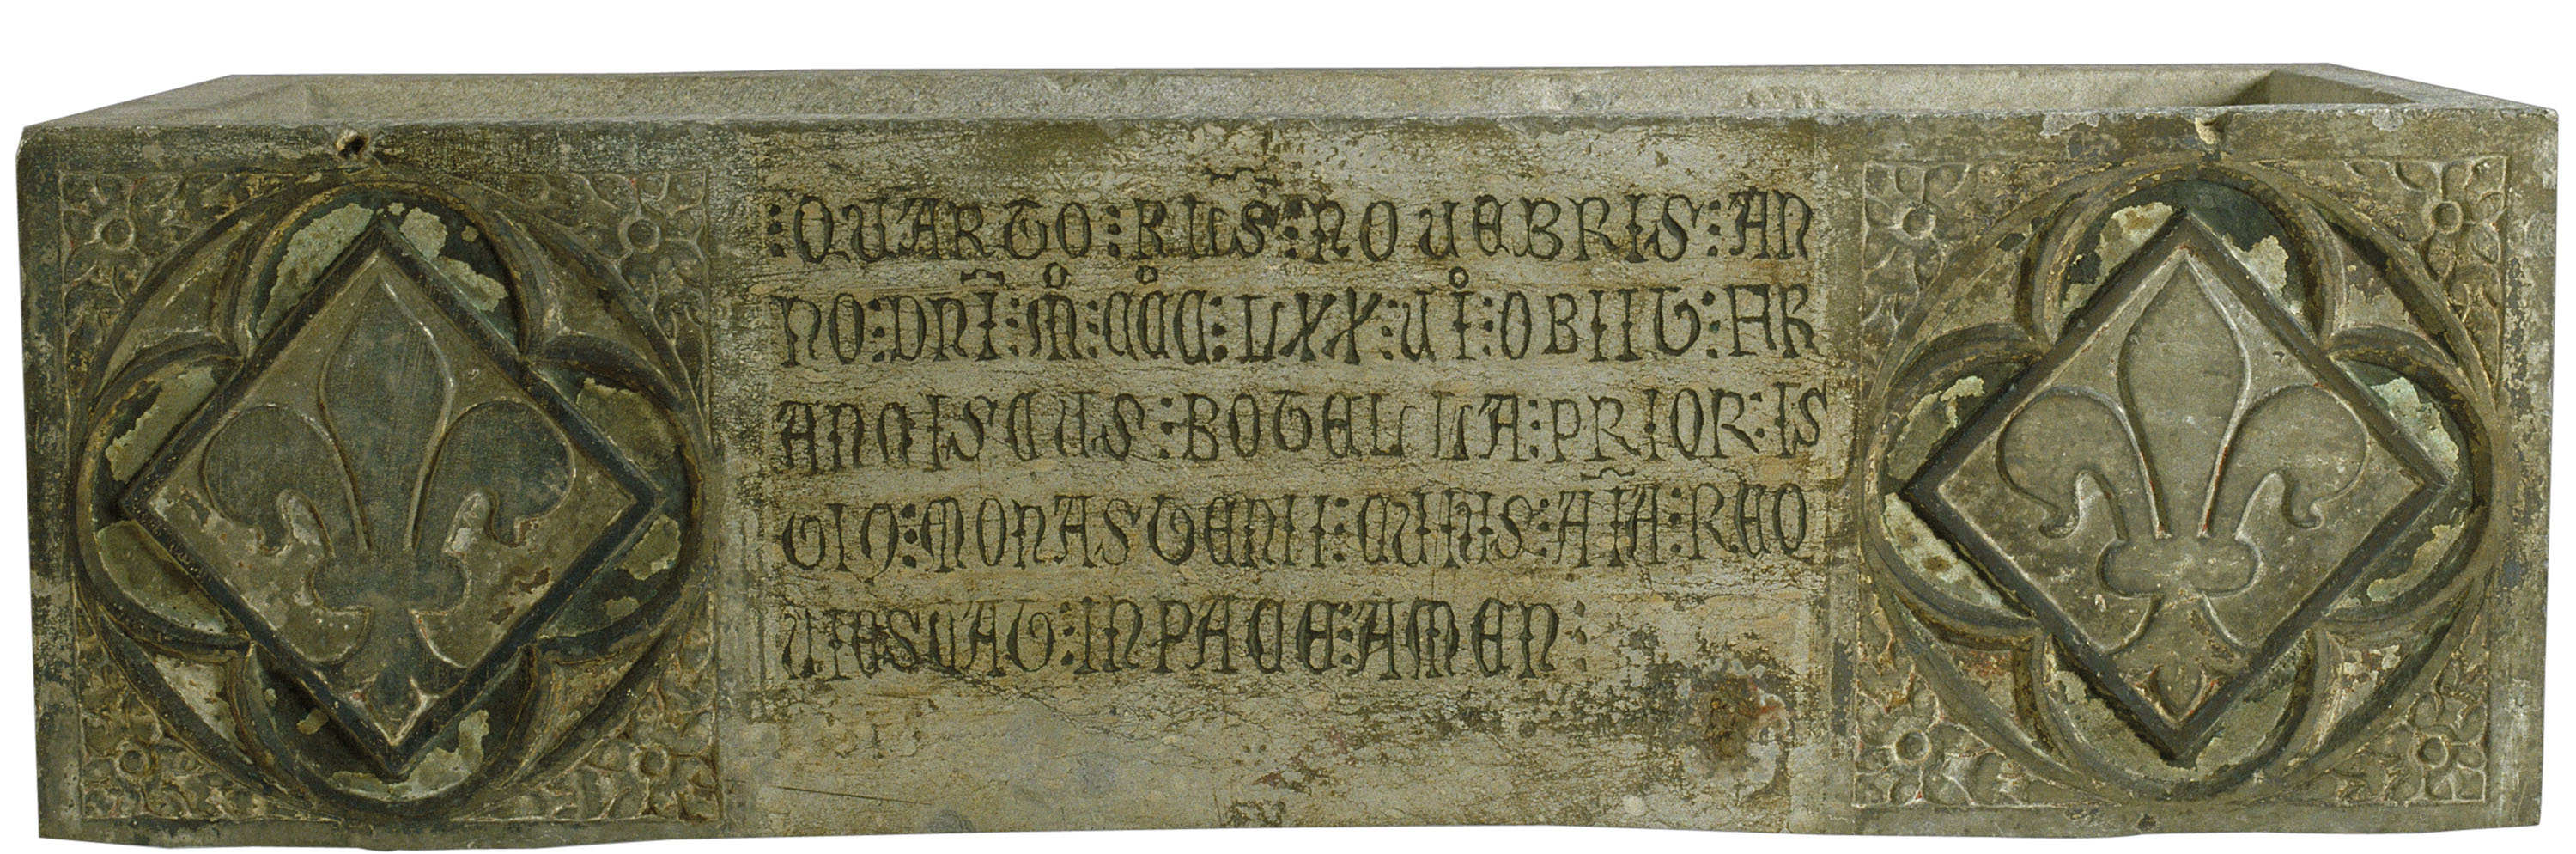 :QUARTO:KLS̄:NOUEBRIS:AN
NO:DNĪ:Mº:CCCº:LXX:UIº:OBIIT:FR
ANCISCUS:BOTELLA:PRIOR:IS
TIQ:MONASTERII:CUIUS:AĪA:REQ
UIESCAT:INPACE:AMEN: